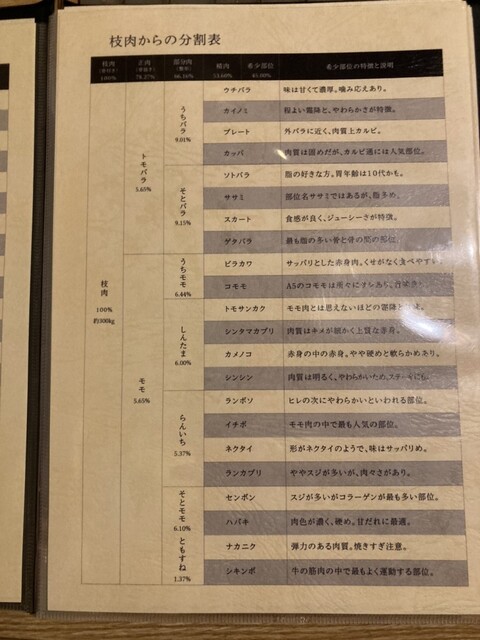 枝肉からの分割表
枝肉 正肉 部分肉 精肉 希少部位 希少部位の特徴と説明
100% 78.27% 66.16% 53.60% 45.00%
ウチバラ 味は甘くて濃厚。噛み応えあり。
カイノミ 程よい霜降と、やわらかさが特徴。
うちバラ
9.01%
プレート 外バラに近く、肉質上カルビ。
カッパ 肉質は固めだが、カルビ通には人気部位。
トモバラ
5.65%
ソトバラ 脂の好きな方。胃年齢は10代かも。
ササミ 部位名ササミではあるが、脂多め。
そとバラ
9.15%
スカート 食感が良く、ジューシーさが特徴。
ゲタバラ 最も脂の多い骨と骨の間の部位。
ヒラカワ サッパリとした赤身肉。くせがなく食べやすい。
うちモモ
6.44%
コモモ A5のコモモは
枝肉
100%
約500kg
トモサンカク モモ肉とは思えないほどの霜降と
シンタマカブリ 肉質はキメが細かく上質な赤身。
しんたま
6.00%
カメノコ 赤身の中の赤身。やや硬めと軟らかめあり。
シンシン 肉質は明るく、やわらかいため、ステーキにも
モモ
5.65%
ランボソ ヒレの次にやわらかいといわれる部位。
イチボ モモ肉の中で最も人気の部位。
らんいち
5.37%
ネクタイ 形がネクタイのようで、味はサッパリめ。
ランカブリ ややスジが多いが、肉々さがあり。
センボン スジが多いがコラーゲンが最も多い部位。
そとモモ
6.10%
ハバキ 肉色が濃く、硬め。甘だれに最適。
ナカニク 弾力のある肉質。焼きすぎ注意。
ともすね
1.37%
シキンボ 牛の筋肉の中で最もよく運動する部位。